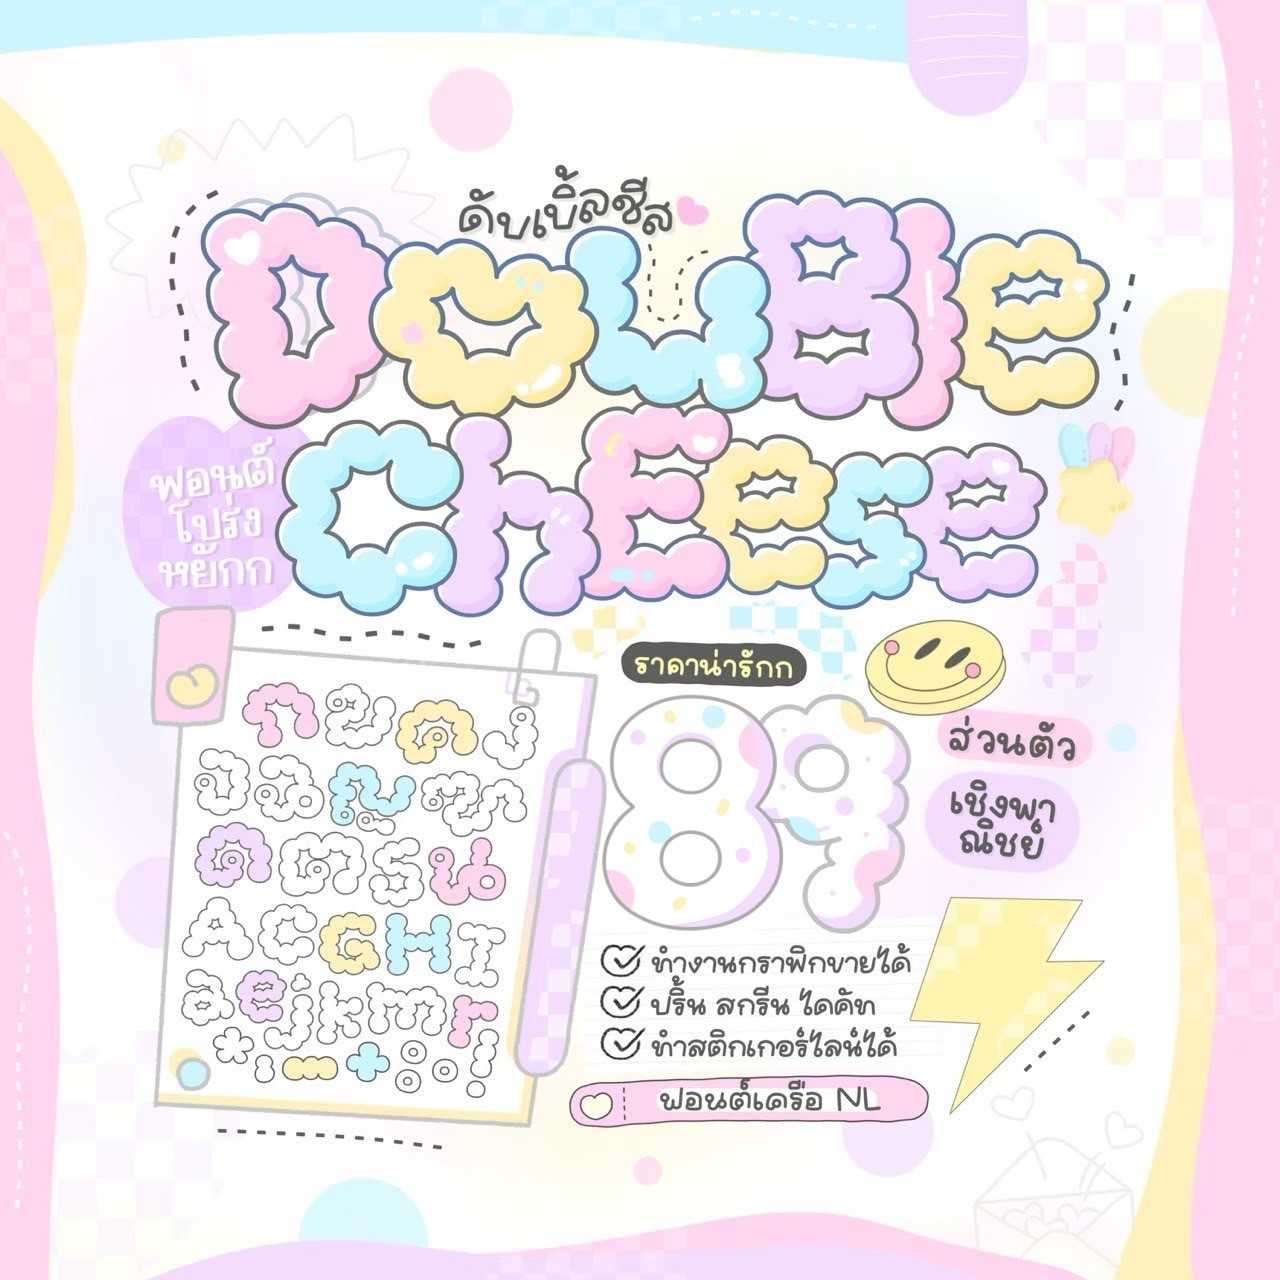 ดับเบิ้ลชีส
DOUBlE
ChEese
ฟอนต์
โปร่ง
หยักก
ราคาน่ารักก
89
ส่วนตัว
เชิงพา
ณิชย์
ก ข ค ง
จ ฉ ญ ฎ
ด ต ร น
A C G H I
a e j k m r
* . - + : !
ทำงานกราฟิกขายได้
ปริ้น สกรีน ไดคัท
ทำสติกเกอร์ไลน์ได้
ฟอนต์เครือ NL